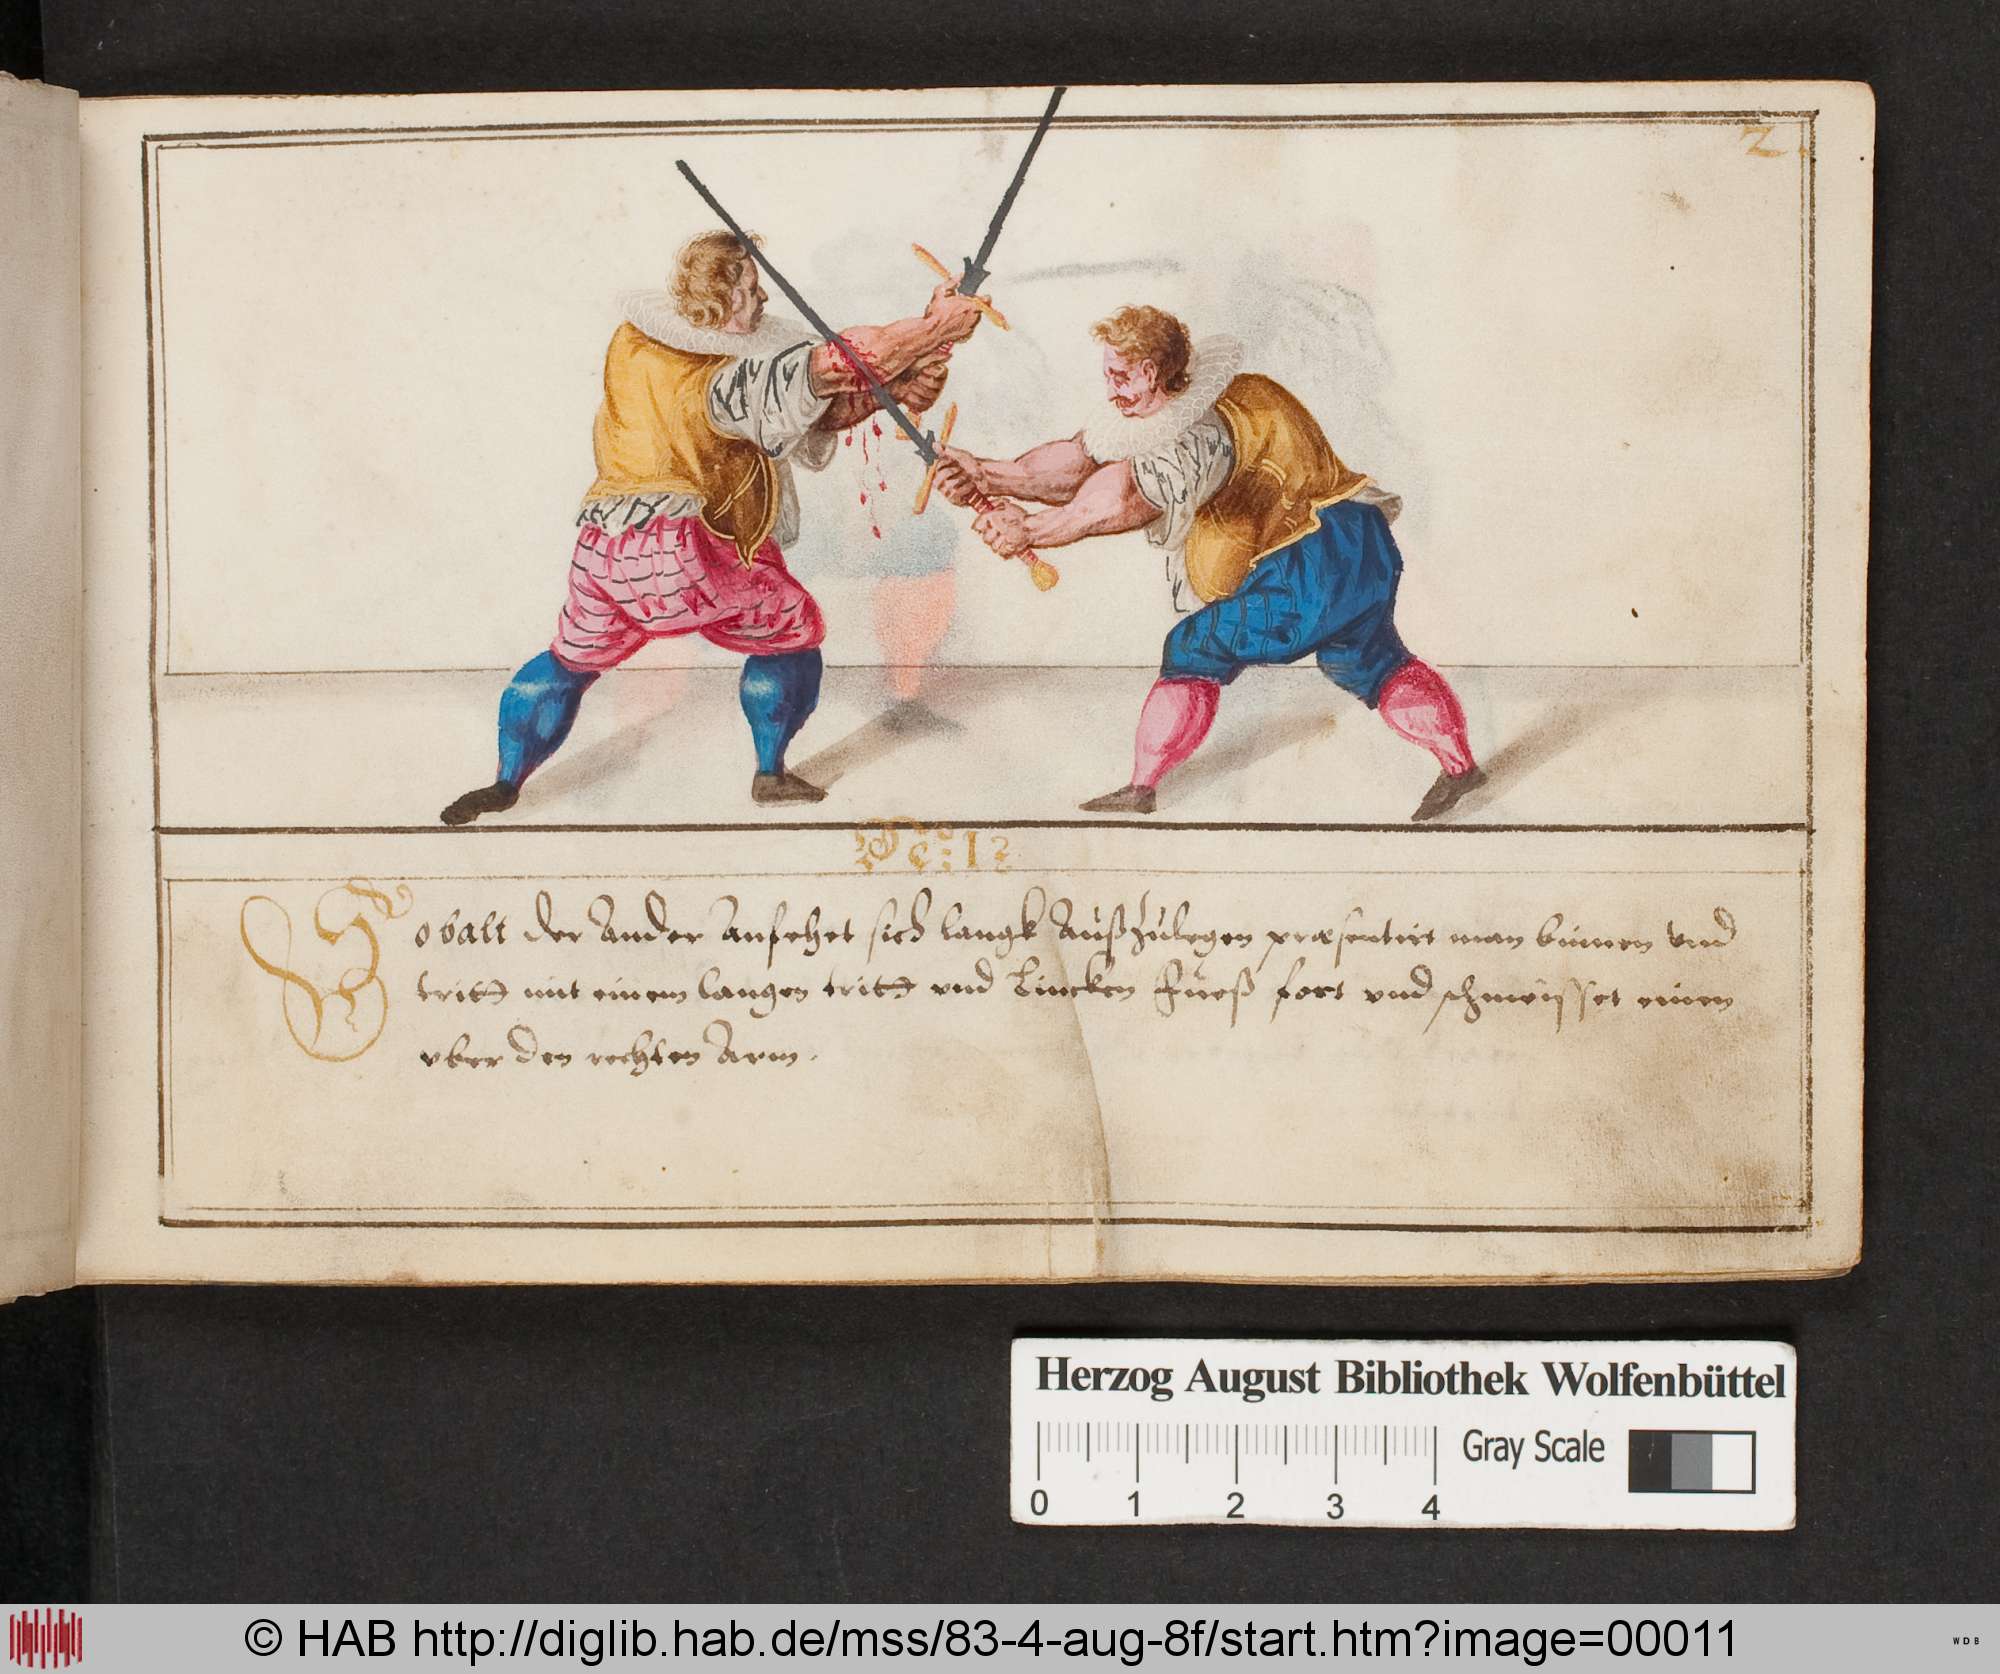 2.
Sobalt der Ander Anfehet sich langk Außzulegen præsentirt man binnen vnd
tritt mit einem langen tritt vnd Lincken Fueß fort vnd schmeisset einen
vber den rechten Arm.
Herzog August Bibliothek Wolfenbüttel
Gray Scale
0 1 2 3 4
© HAB http://diglib.hab.de/mss/83-4-aug-8f/start.htm?image=00011
WDB